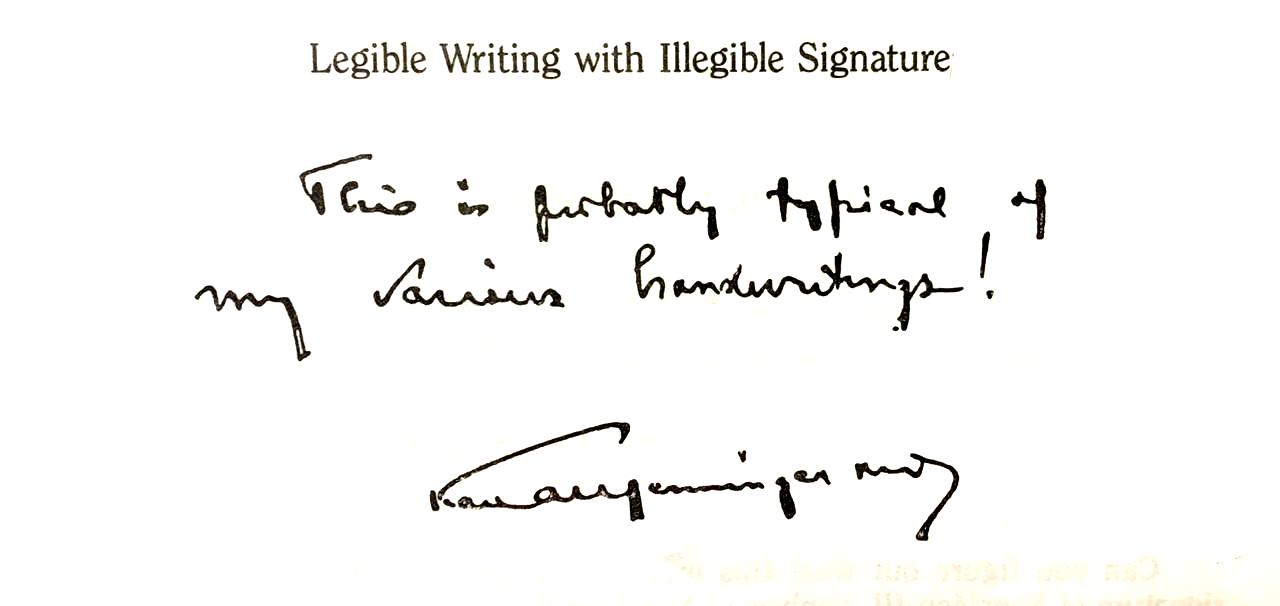 Legible Writing with Illegible Signature
This is probably typical of
my various handwritings!